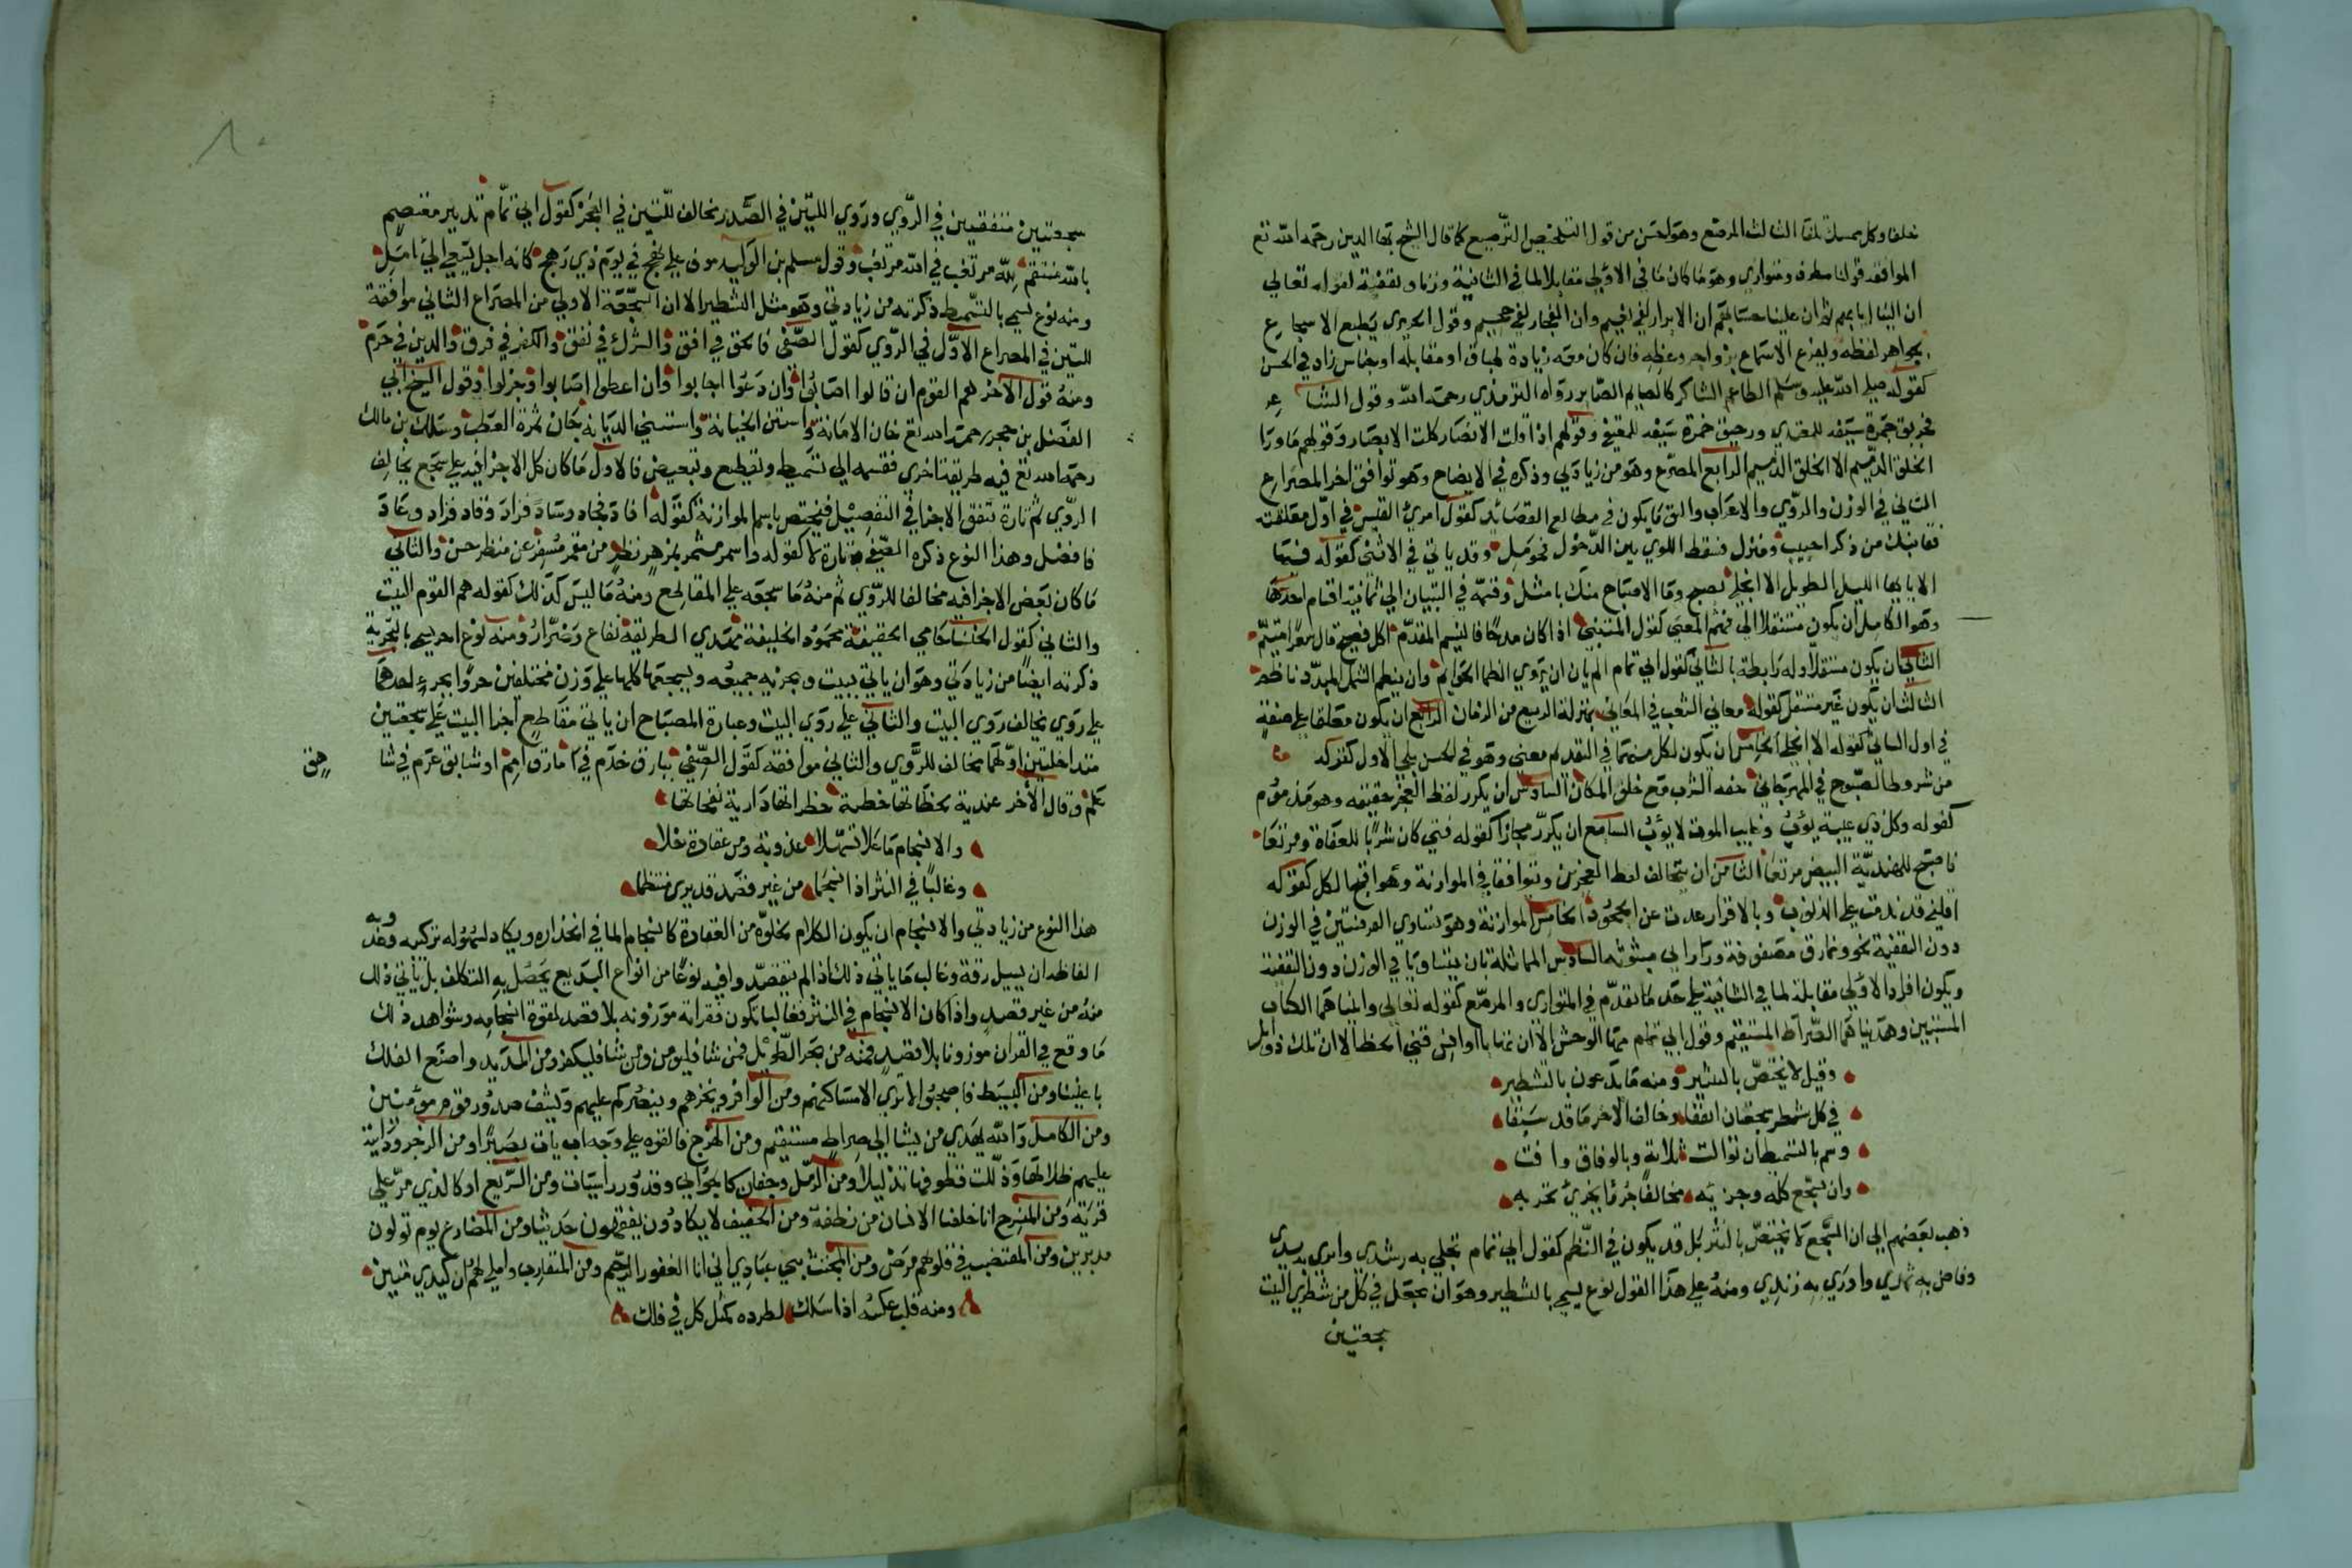 خلفا وكل ممسك تلفا الثالث المرصع وهو احسن من قول التلخيص الترصيع كما قال الشيخ بهاء الدين رحمه الله تع
الموافقه قولنا مطرف ومتوازي وهو ما كان ما في الاولى مقابلا لما في الثانية وزنا وتقفية لقوله تعالى
ان الينا ايابهم ثم ان علينا حسابهم ان الابرار لفي نعيم وان الفجار لفي جحيم وقول الحريري يطبع الاسجاع
بجواهر لفظه ويقرع الاسماع بزواجر وعظه فان كان معه زيادة طباق او مقابلة او جناس زاد في الحسن
كقوله صلى الله عليه وسلم الطاعم الشاكر كالصايم الصابر رواه الترمذي رحمه الله وقول الشاعر
فحريق جمرة سيفه للمعتدي ورحيق خمرة سيبه للمعتفي وقولهم اذا قلت الانصار كلت الابصار وقولهم ما ورا
الخلق الدميم الا الخلق الذميم الرابع المصرع وهو من زيادتي وذكره في الايضاح وهو توافق اخر المصراع
الثاني في الوزن والروي والاعراب واليق ما يكون في مطالع القصائد كقول امرئ القيس في اول معلقته
قفا نبك من ذكرى حبيب ومنزل بسقط اللوى بين الدخول فحومل وقد ياتي في الاثناء كقوله فيها
الا ايها الليل الطويل الا انجلي بصبح وما الاصباح منك بامثل وقسمه في التبيان الى ثمانية اقسام احدها
وهو الكامل ان يكون مستقلا في فهم المعنى كقول المتنبي اذا كان مدحا فالنسيب المقدم اكل فصيح قال شعرا متيم
الثاني ان يكون مستقلا وله رابطة بالثاني كقول ابي تمام الم يان ان تروي الظما الحوايم وان ينظم الشمل المبدد ناظم
الثالث ان يكون غير مستقل كقوله مغاني الشعب في المغاني بمنزلة الربيع من الزمان الرابع ان يكون معلقا على صفة
في اول الثاني كقوله الا انجلي الخامس ان يكون لكل منهما في التقديم معنى وهو في الحسن يلي الاول كقوله
من شروط الصبوح في المهرجان خفة الشرب مع خلو المكان السادس ان يكرر لفظ العجز حقيقة وهو مذموم
كقوله وكل ذي غيبة يؤب وغايب الموت لا يؤب السابع ان يكرر مجازا كقوله فتى كان شربا للعفاة ومرتعا
فاصبح للهندية البيض مرتعا الثامن ان يتخالف لفظ العجزين وتتوافقا في الموازنة وهو اقبح الكل كقوله
اقلني قد ندمت على الذنوب وبالاقرار عدت عن الجحود الخامس الموازنة وهو تساوي القرينتين في الوزن
دون التقفية نحو ونمارق مصفوفة وزرابي مبثوثة السادس المماثلة بان يتساويا في الوزن دون التقفية
ويكون افراد الاولى مقابلة لما في الثانية على حد ما تقدم في المتوازي والمرصع كقوله تعالى واتيناهما الكتاب
المستبين وهديناهما الصراط المستقيم وقول ابي تمام مها الوحش الا ان هاتا اوانس قنى الخط الا ان تلك ذوابل
وقيل لا يختص بالنثر ومنه ما يدعون بالتشطير
في كل شطر سجعتان اتفقا وخالف الاخر ما قد سبقا
وسم بالتسميط ان توالت ثلاثة وبالوفاق وافت
وان تسجع كله وجزيه مخالفا جزءا بجزء تجزيه
ذهب بعضهم الى ان السجع لا يختص بالنثر بل قد يكون في النظم كقول ابي تمام تجلى به رشدي واثرت به يدي
وفاض به ثمدي واورى به زندي ومنه على هذا القول نوع يسمى بالتشطير وهو ان يجعل في كل من شطري البيت
سجعتين
٨٠
سجعتين متفقتين في الروي وروي اللتين في الصدر مخالف للتين في العجز كقول ابي تمام تدبير معتصم
بالله منتقم لله مرتغب في الله مرتقب وقول مسلم بن الوليد موف على مهج في يوم ذي رهج كانه اجل يسعى الى امل
ومنه نوع يسمى بالتسميط ذكرته من زيادتي وهو مثل التشطير الا ان السجعة الاولى من المصراع الثاني موافقة
للتين في المصراع الاول في الروي كقول الصفي فالحق في افق والشرك في نفق والكفر في فرق والدين في حرم
ومنه قول الاخر هم القوم ان قالوا اصابوا وان دعوا اجابوا وان اعطوا اصابوا واجزلوا وقول الشيخ ابي
الفضل بن حجر رحمه الله تع خان الامانة واستن الخيانة واستثنى الديانة جان ثمرة العطب وسلك بن مالك
رحمه الله تع فيه طريقة اخرى فقسمه الى تسميط وتقطيع وتبعيض فالاول ما كان كل الاجزا فيه على سجع يخالف
الروي ثم تارة تتفق الاجزا في التفصيل فيختص باسم الموازنة كقوله افاد فجاد وساد فزاد وقاد فزاد وعاد
فافضل وهذا النوع ذكره الصفي وتارة لا كقوله واسمر مثمر بمزهر نظر من مقمر مسفر عن منظر حسن والثاني
ما كان بعض الاجزا فيه مخالفا للروي ثم منه ما سجعه على المقاطع ومنه ما ليس كذلك كقوله هم القوم البيت
والثاني كقول الخنسا حامي الحقيقة محمود الخليقة مهدي الطريقة نفاع وضرار ومنه نوع اخر يسمى بالتجزية
ذكرته ايضا من زيادتي وهو ان ياتي ببيت ويجزيه جميعه ويسجعها كلها على وزن مختلفين جزءا بجزء احدهما
على روي يخالف روي البيت والثاني على روي البيت وعبارة المصباح ان ياتي مقاطع اجزا البيت على سجعتين
متداخلتين اولهما مخالف للروي والثاني موافقه كقول الصفي ببارق خذم في مازق امم او شابق عرم في شاهق
علم وقال الاخر هندية لحظاتها خطية خطراتها دارية نفحاتها
والانسجام ما علا تسهلا عذوبة ومن عقادة خلا
وغالبا في النثر اذ انسجما من غير قصد قد يرى منتظما
هذا النوع من زيادتي والانسجام ان يكون الكلام بخلوه من العقادة كانسجام الما في انحداره ويكاد لسهولة تركيبه وعذوبة
الفاظه ان يسيل رقة وغالب ما ياتي ذلك اذا لم يتقصد وافيه نوعا من انواع البديع يحصل به التكلف بل ياتي ذلك
منه من غير قصد واذا كان الانسجام في النثر فغالبا تكون فقراته موزونة بلا قصد لقوة انسجامه وشواهد ذلك
ما وقع في القران موزونا بلا قصد فمنه من بحر الطويل فمن شا فليومن ومن شا فليكفر ومن المديد واصنع الفلك
باعيننا ومن البسيط فاصبحوا لا ترى الا مساكنهم ومن الوافر ويخزهم وينصركم عليهم ويشف صدور قوم مؤمنين
ومن الكامل والله يهدي من يشا الى صراط مستقيم ومن الهزج فالقوه على وجه ابي يات بصيرا ومن الرجز ودانية
عليهم ظلالها وذللت قطوفها تذليلا ومن الرمل وجفان كالجوابي وقدور راسيات ومن السريع او كالذي مر على
قرية ومن المنسرح انا خلقنا الانسان من نطفة ومن الخفيف لا يكادون يفقهون حديثا ومن المضارع يوم تولون
مدبرين ومن المقتضب في قلوبهم مرض ومن المجتث نبي عبادي اني انا الغفور الرحيم ومن المتقارب واملي لهم ان كيدي متين
ومنه قلب عكسه اذا سلك لطرده كمثل كل في فلك